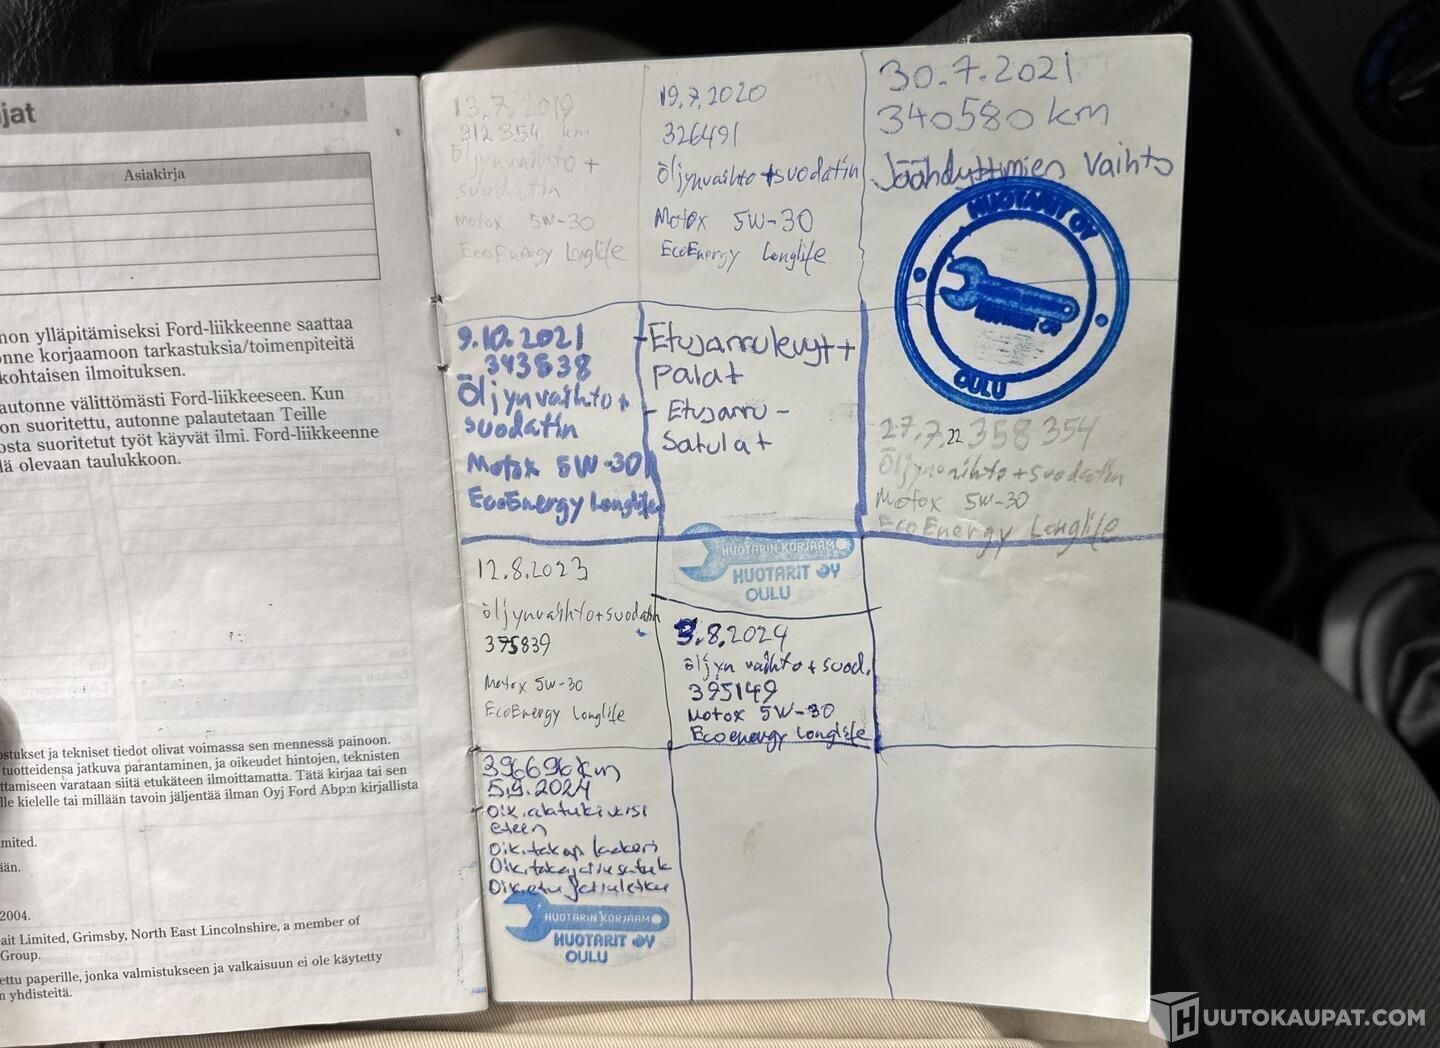 jat
Asiakirja
non ylläpitämiseksi Ford-liikkeenne saattaa
onne korjaamoon tarkastuksia/toimenpiteitä
kohtaisen ilmoituksen.
autonne välittömästi Ford-liikkeeseen. Kun
on suoritettu, autonne palautetaan Teille
osta suoritetut työt käyvät ilmi. Ford-liikkeenne
lä olevaan taulukkoon.
ostukset ja tekniset tiedot olivat voimassa sen mennessä painoon.
tuotteidensa jatkuva parantaminen, ja oikeudet hintojen, teknisten
ttamiseen varataan siitä etukäteen ilmoittamatta. Tätä kirjaa tai sen
lle kielelle tai millään tavoin jäljentää ilman Oyj Ford Abp:n kirjallista
imited.
ään.
2004.
ait Limited, Grimsby, North East Lincolnshire, a member of
Group.
ettu paperille, jonka valmistukseen ja valkaisuun ei ole käytetty
n yhdisteitä.
13.7.2019
312354 km
Öljynvaihto +
suodatin
Motox 5W-30
EcoEnergy Longlife
19.7.2020
326491
Öljynvaihto +suodatin
Motox 5W-30
EcoEnergy Longlife
30.7.2021
340580 km
Jäähdyttimien vaihto
HUOTARIT OY
HUOTARIT OY
OULU
9.10.2021
343538
Öljynvaihto +
suodatin
Motox 5W-30
EcoEnergy Longlife
-Etujarrulevyt +
palat
- Etujarru-
satulat
HUOTARIN KORJAAMO
HUOTARIT OY
OULU
27.7.22 358354
Öljynvaihto + suodatin
Motox 5W-30
EcoEnergy Longlife
12.8.2023
öljynvaihto+suodatin
375839
Motox 5W-30
EcoEnergy Longlife
3.8.2024
öljyn vaihto + suod.
395149
Motox 5W-30
Ecoenergy longlife
396696km
5.9.2024
Oik. alatukivarsi
eteen
Oik. takap laakeri
Oik. takajarrusatula
Oik. etu jarruletku
HUOTARIN KORJAAMO
HUOTARIT OY
OULU
HUUTOKAUPAT.COM